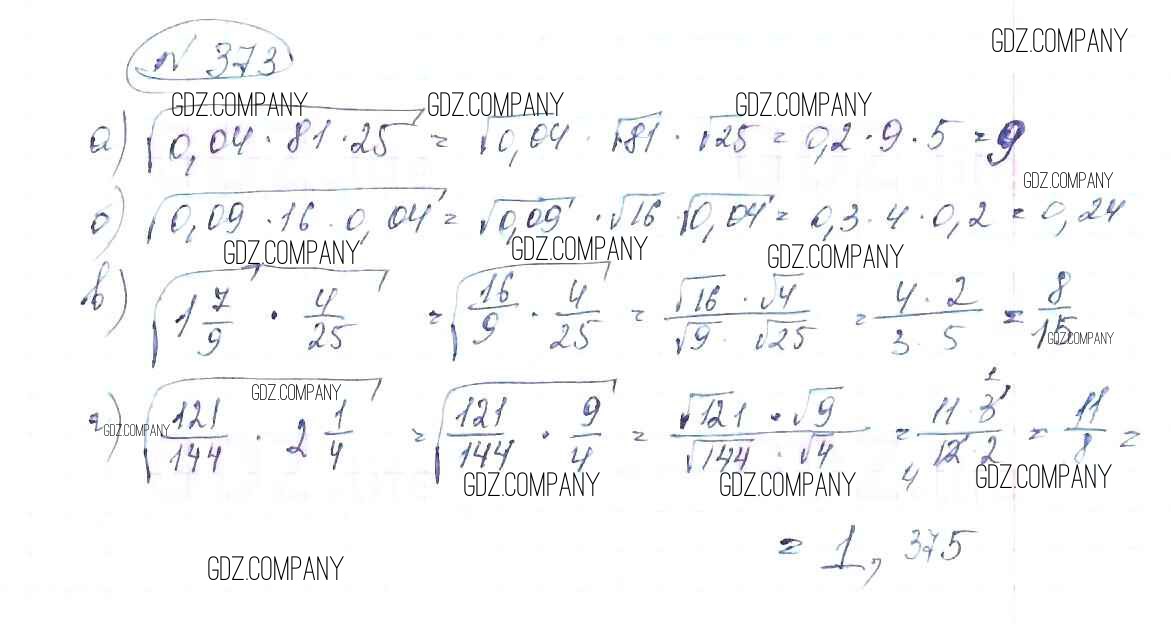 GDZ.COMPANY
№ 373
GDZ.COMPANY GDZ.COMPANY GDZ.COMPANY
а) √(0,04 · 81 · 25) = √0,04 · √81 · √25 = 0,2 · 9 · 5 = 9
GDZ.COMPANY
б) √(0,09 · 16 · 0,04) = √0,09 · √16 · √0,04 = 0,3 · 4 · 0,2 = 0,24
GDZ.COMPANY GDZ.COMPANY GDZ.COMPANY
в) √(1 7/9 · 4/25) = √(16/9 · 4/25) = (√16 · √4)/(√9 · √25) = (4 · 2)/(3 · 5) = 8/15
GDZ.COMPANY
GDZ.COMPANY
г) √(121/144 · 2 1/4) = √(121/144 · 9/4) = (√121 · √9)/(√144 · √4) = (11 · 3 1)/(12 4 · 2) = 11/8 =
GDZ.COMPANY
GDZ.COMPANY GDZ.COMPANY GDZ.COMPANY
= 1,375
GDZ.COMPANY